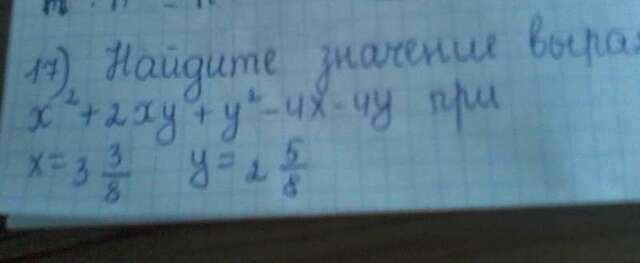 17) Найдите значение выра
x² + 2xy + y² - 4x - 4y при
x = 3 3/8 y = 2 5/8